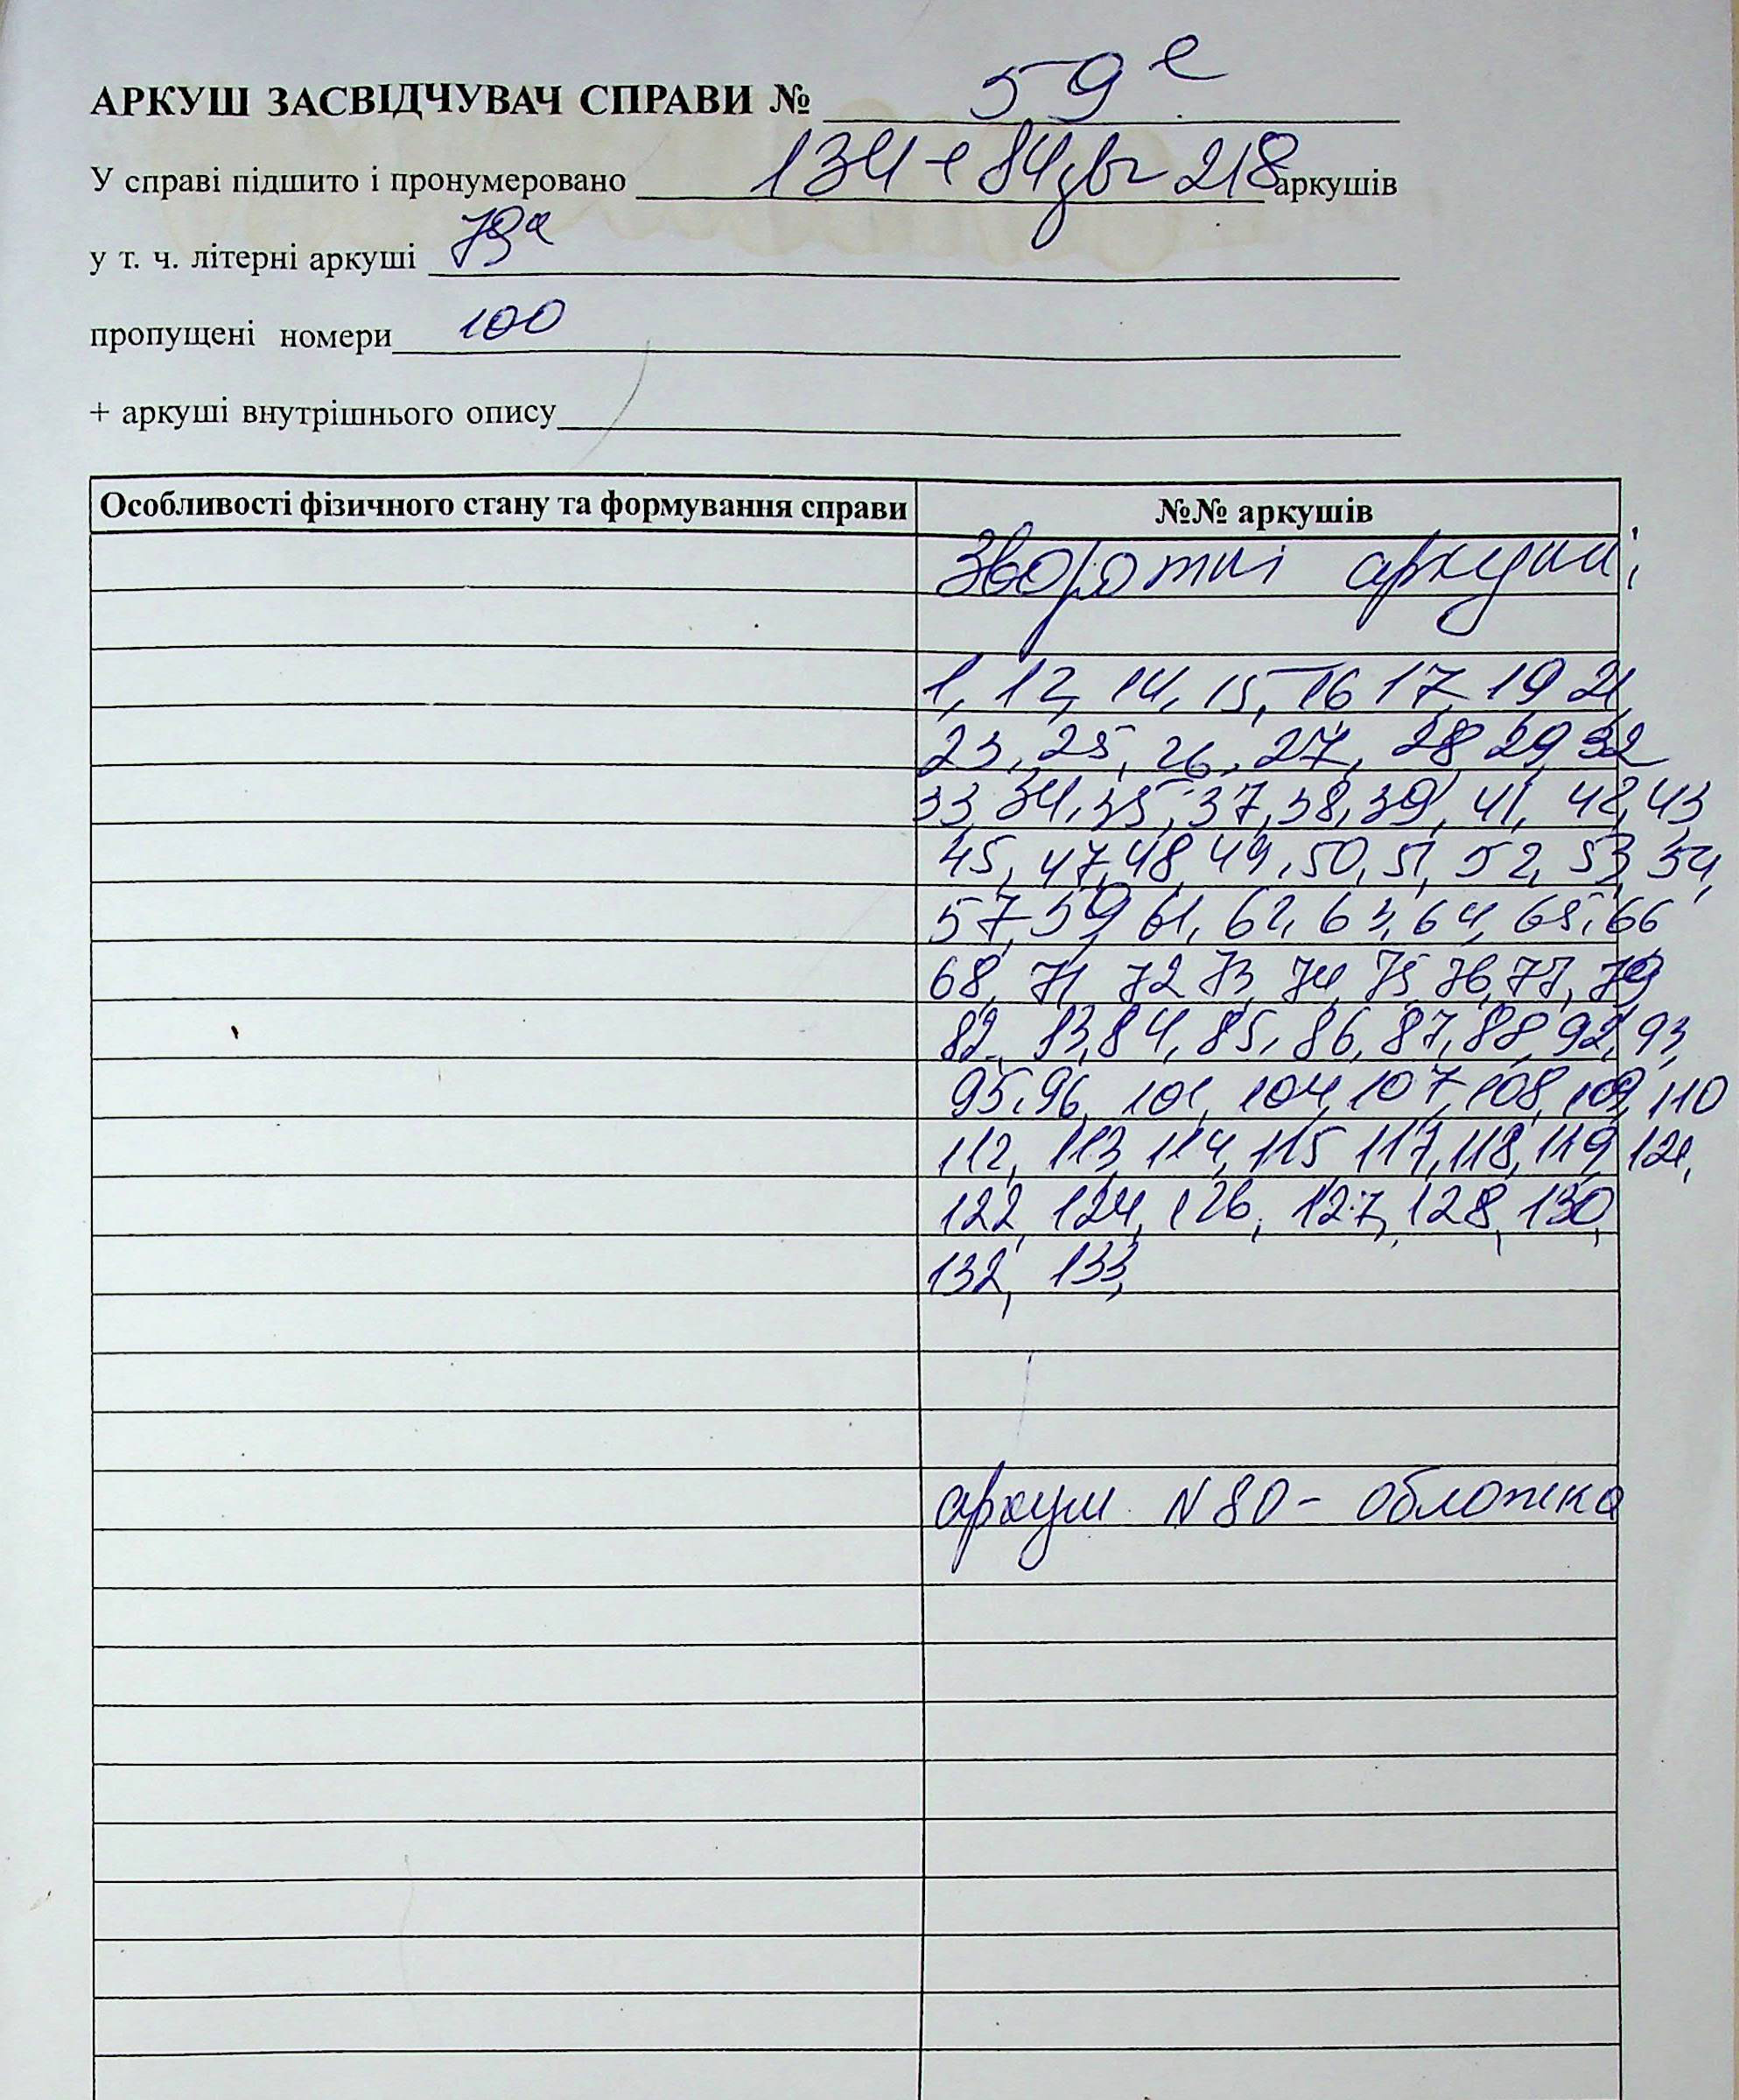 АРКУШ ЗАСВІДЧУВАЧ СПРАВИ № 59 е
У справі підшито і пронумеровано 134 + 84 зв = 218 аркушів
у т. ч. літерні аркуші 79а
пропущені номери 100
+ аркуші внутрішнього опису
Особливості фізичного стану та формування справи №№ аркушів
Зворотні аркуші:
1, 12, 14, 15, 16 17, 19 21,
23, 25, 26, 27, 28 29, 32
33, 34, 35, 37, 38, 39, 41, 42, 43
45, 47, 48, 49, 50, 51, 52, 53, 54,
57, 59, 61, 62, 63, 64, 65, 66
68, 71, 72 73, 74, 75, 76, 77, 79
82, 83, 84, 85, 86, 87, 88, 92, 93,
95, 96, 101, 104, 107, 108, 109, 110
112, 113, 114, 115 117, 118, 119, 121,
122, 124, 126, 127, 128, 130,
132, 133,
аркуш N 80 - обложка